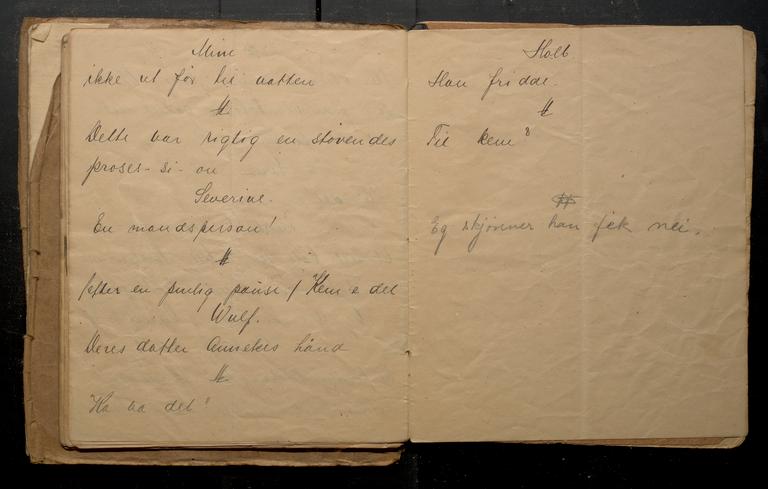 Mine
ikke ut før til natten
#
Dette var rigtig en støvendes
proses-si-on
Severine.
En mandsperson!
#
(efter en pinlig pause) Kem e det
Wulf.
Deres datter Annekes hånd
#
Ka va det?
Holb
Han fridde.
#
Til kem?
#
Eg skjønner han fek nei.